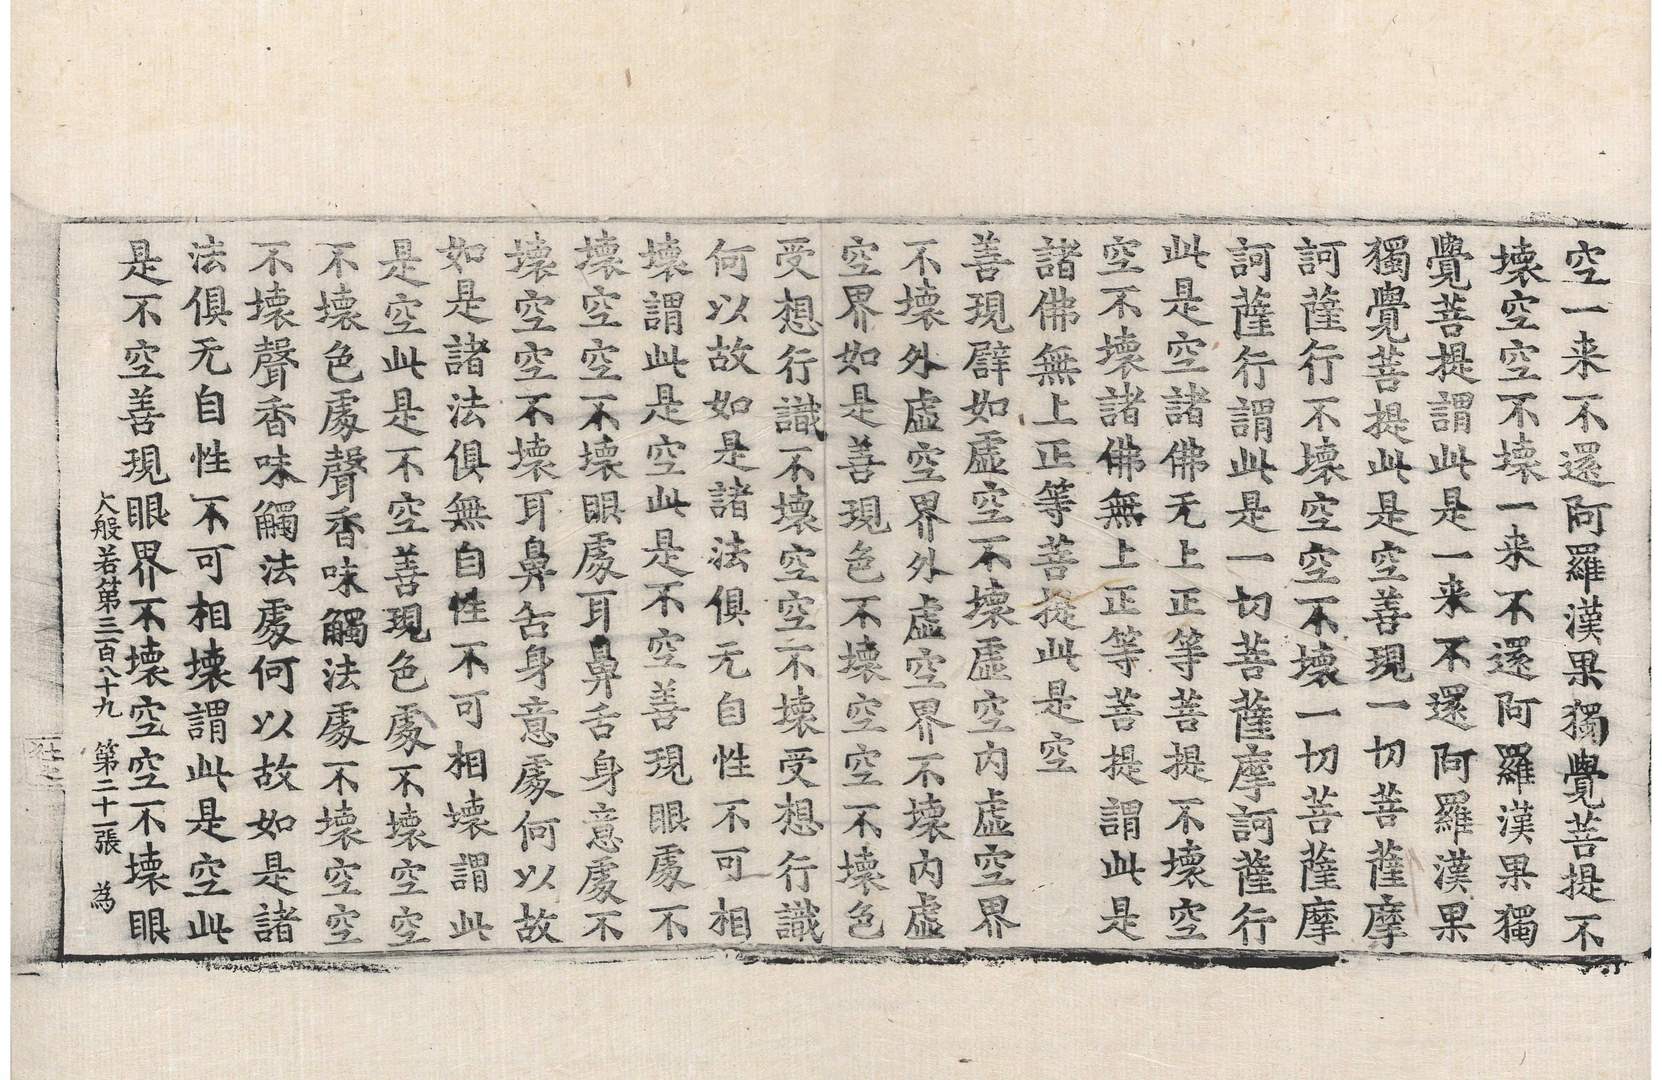 空一来不還阿羅漢果獨覺菩提不
壊空空不壊一来不還阿羅漢果獨
覺菩提謂此是一来不還阿羅漢果
獨覺菩提此是空善現一切菩薩摩
訶薩行不壊空空不壊一切菩薩摩
訶薩行謂此是一切菩薩摩訶薩行
此是空諸佛无上正等菩提不壊空
空不壊諸佛無上正等菩提謂此是
諸佛無上正等菩提此是空
善現譬如虛空不壊虛空內虛空界
不壊外虛空界外虛空界不壊內虛
空界如是善現色不壊空空不壊色
受想行識不壊空空不壊受想行識
何以故如是諸法俱无自性不可相
壊謂此是空此是不空善現眼處不
壊空空不壊眼處耳鼻舌身意處不
壊空空不壊耳鼻舌身意處何以故
如是諸法俱無自性不可相壊謂此
是空此是不空善現色處不壊空空
不壊色處聲香味觸法處不壊空空
不壊聲香味觸法處何以故如是諸
法俱无自性不可相壊謂此是空此
是不空善現眼界不壊空空不壊眼
大般若第三百八十九 第二十一張 為